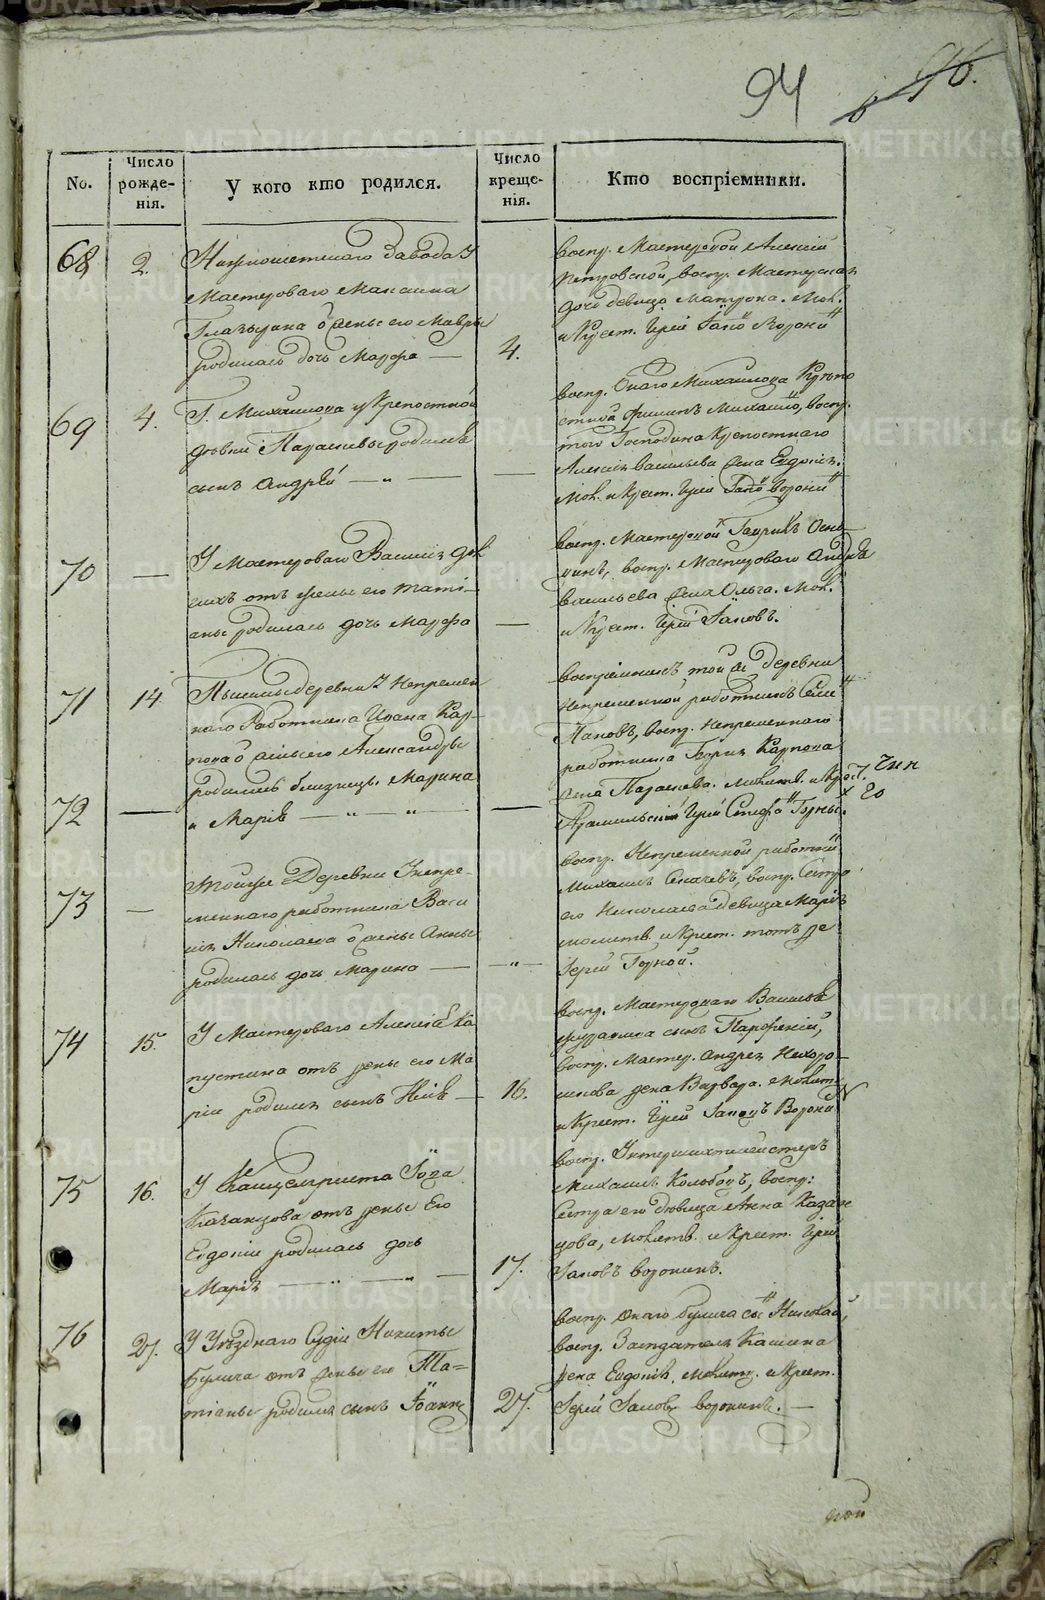 94
96.
No.
Число рожде-нія.
У кого кто родился.
Число креще-нія.
Кто воспріемники.
68
2.
Завода У
Мастероваго Максима
женые его Мавры
родилась дочь Марфа —
4.
воспр. Мастерской Алексѣй
Петровской, воспр. Мастерская
дочь девица Матрона. Мол.
и Крест. Іерей Іако Воронин
69
4.
Г. Михайлова у Крепостной
девки Параскевы родился
сынъ Андрей — „ —
—
воспр. Онаго Михайлова
Михайло, воспр.
того Господина Крепостнаго
Алексѣя Васильева жена Евдокія.
Мол. и Крест. Іерей Іако Воронин
70
—
У Мастероваго Василія
отъ жены его Тати-
аны родилась дочь Марфа
—
воспр. Мастерской Гаврилъ
воспр. Мастероваго Андрея
Васильева жена Ольга. Мол.
и Крест. Іерей Іаковъ.
71
14
деревни У Непремен
наго Работника Ивана Кар-
пова женые его Александры
родились близнецы Марина
и Марія — „ — „
72
—
—
воспріемникъ той же деревни
Непременной работникъ
Паповъ, воспр. Непременнаго
работника Карпова
жена Параскева. Молитв. и Крест. Чин
Іерей Стефа Горных. Ео
73
—
Тойже Деревни У непре-
меннаго работника Васи
лія Николаева женые Анны
родилась дочь Марина —
— „ —
воспр. Непременной работни
Михаилъ воспр. Сестра
его Николаева девица Марія
молитв. и Крест. тотъ же
Іерей Горной.
74
15.
У Мастероваго Алексія Ка
пустина отъ жены его Ма
ріи родился сынъ Илія —
16.
воспр. Мастероваго Василья
сынъ Парфеній,
воспр. Мастер. Андрея Нехоро-
шкова жена Варвара. Молит.
и Крест. Іерей Іаковъ Ворони
75
16.
У Канцеляриста Іова
Казанцова отъ жены Его
Евдокіи родилась дочь
Марія — „ — „ —
17.
воспр. Унтершихтмейстеръ
Михаилъ воспр:
Сестра его девица Анна Казан
цова, Молитв. и Крест. Іерей
Іаковъ Воронинъ.
76
27.
У Уѣзднаго Судіи Никиты
Булича отъ жены его Та=
тіаны родился сынъ Іоаннъ
27.
воспр. Онаго Булича сы Николай,
воспр. Заседателя Кашина
жена Евдокія, молитв. и Крест.
Іерей Іаковъ Воронинъ. —